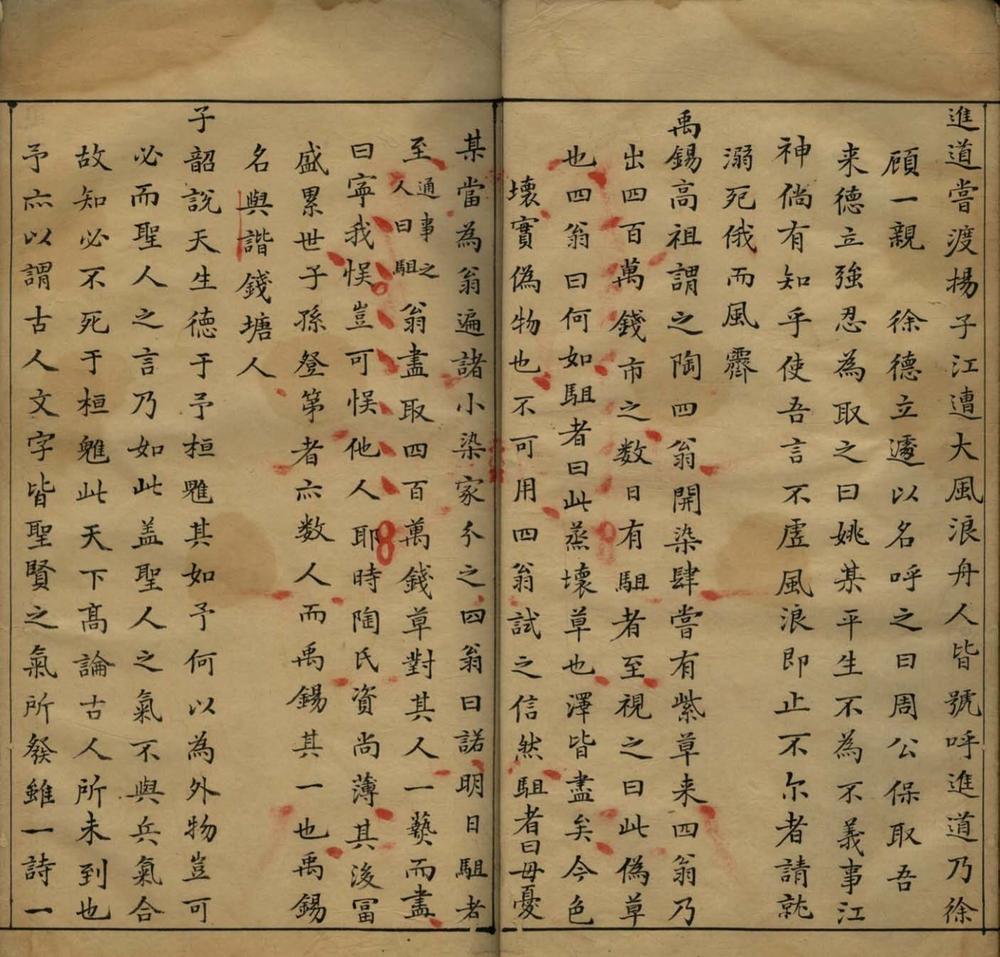 進道嘗渡揚子江遭大風浪舟人皆號呼進道乃徐
顧一親　徐德立遽以名呼之曰周公保取吾
来德立強忍為取之曰姚某平生不為不義事江
神倘有知乎使吾言不虛風浪即止不尔者請就
溺死俄而風霽
禹錫高祖謂之陶四翁開染肆嘗有紫草来四翁乃
出四百萬錢市之数日有駔者至視之曰此偽草
也四翁曰何如駔者曰此蒸壞草也澤皆盡矣今色
壞實偽物也不可用四翁試之信然駔者曰毋憂
某當為翁遍諸小染家分之四翁曰諾明日駔者
至通事之人曰駔翁盡取四百萬錢草對其人一爇而盡
曰寧我悞豈可悞他人耶時陶氏資尚薄其後冨
盛累世子孫登第者亦数人而禹錫其一也禹錫
名與諧錢塘人
子韶説天生德于予桓魋其如予何以為外物豈可
必而聖人之言乃如此盖聖人之氣不與兵氣合
故知必不死于桓魋此天下髙論古人所未到也
予亦以謂古人文字皆聖賢之氣所發雖一詩一